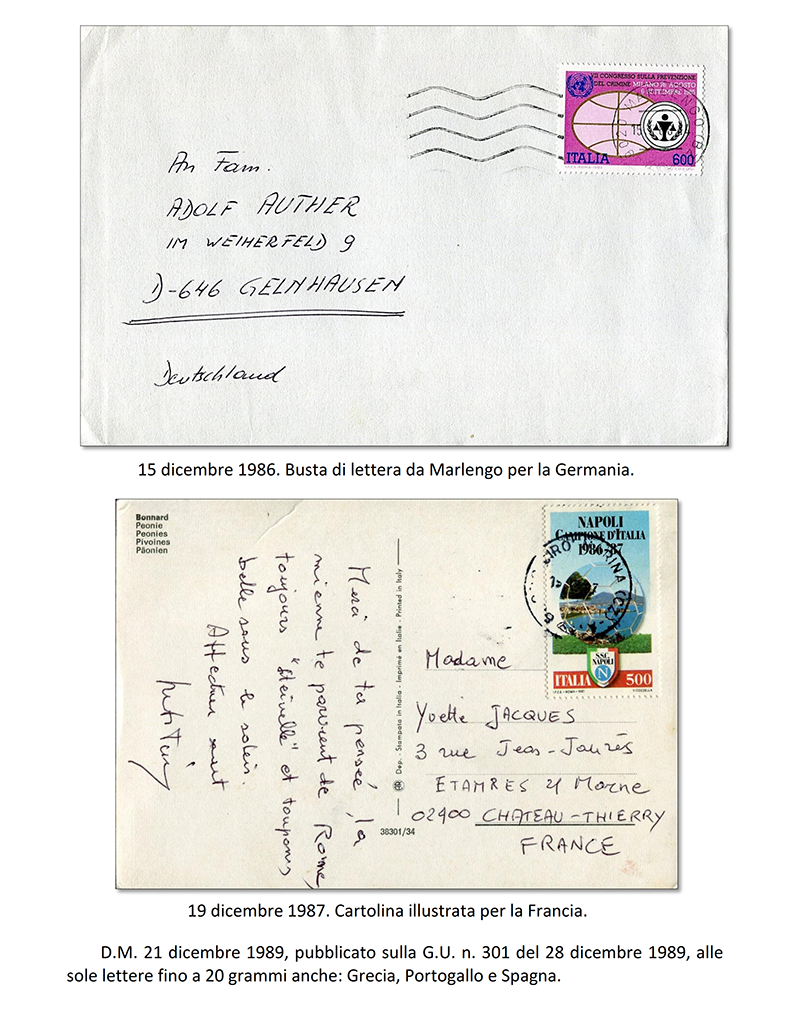 VII CONGRESSO SULLA PREVENZIONE
DEL CRIMINE MILANO 26 AGOSTO
6 SETTEMBRE 1985
ITALIA 600
An Fam.
ADOLF AUTHER
IM WEIHERFELD 9
D-646 GELNHAUSEN
Deutschland
15 dicembre 1986. Busta di lettera da Marlengo per la Germania.
Bonnard
Peonie
Peonies
Pivoines
Päonien
Merci de ta pensée, la
mienne te parvient de Rome,
toujours "éternelle" et toujours
belle sous le soleil.
Dep. - Stampata in Italia - Imprimé en Italie - Printed in Italy
38301/34
NAPOLI
CAMPIONE D'ITALIA
1986-87
S.S.C.
NAPOLI
N
ITALIA 500
Madame
Yvette JACQUES
3 rue Jean-Jaurès
ETAMPES s/ Marne
02400 CHATEAU-THIERRY
FRANCE
19 dicembre 1987. Cartolina illustrata per la Francia.
D.M. 21 dicembre 1989, pubblicato sulla G.U. n. 301 del 28 dicembre 1989, alle
sole lettere fino a 20 grammi anche: Grecia, Portogallo e Spagna.